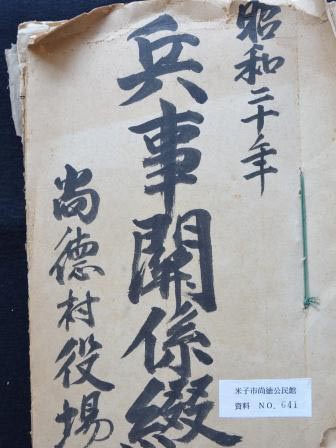 昭和二十年
兵事関係綴
尚徳村役場
米子市尚徳公民館
資料 NO. 641